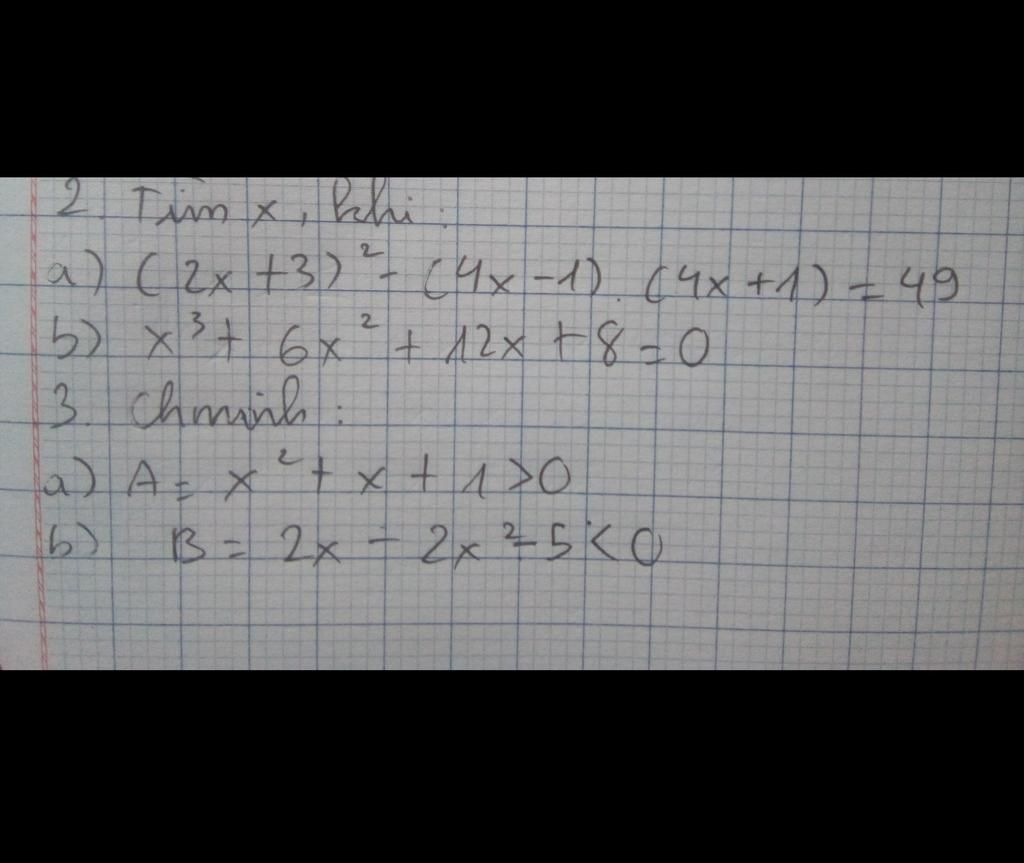 2. Tìm x, khi:
a) (2x +3)² - (4x -1). (4x +1) = 49
b) x³ + 6x² + 12x + 8 = 0
3. Chminh:
a) A = x² + x + 1 > 0
b) B = 2x - 2x² - 5 < 0